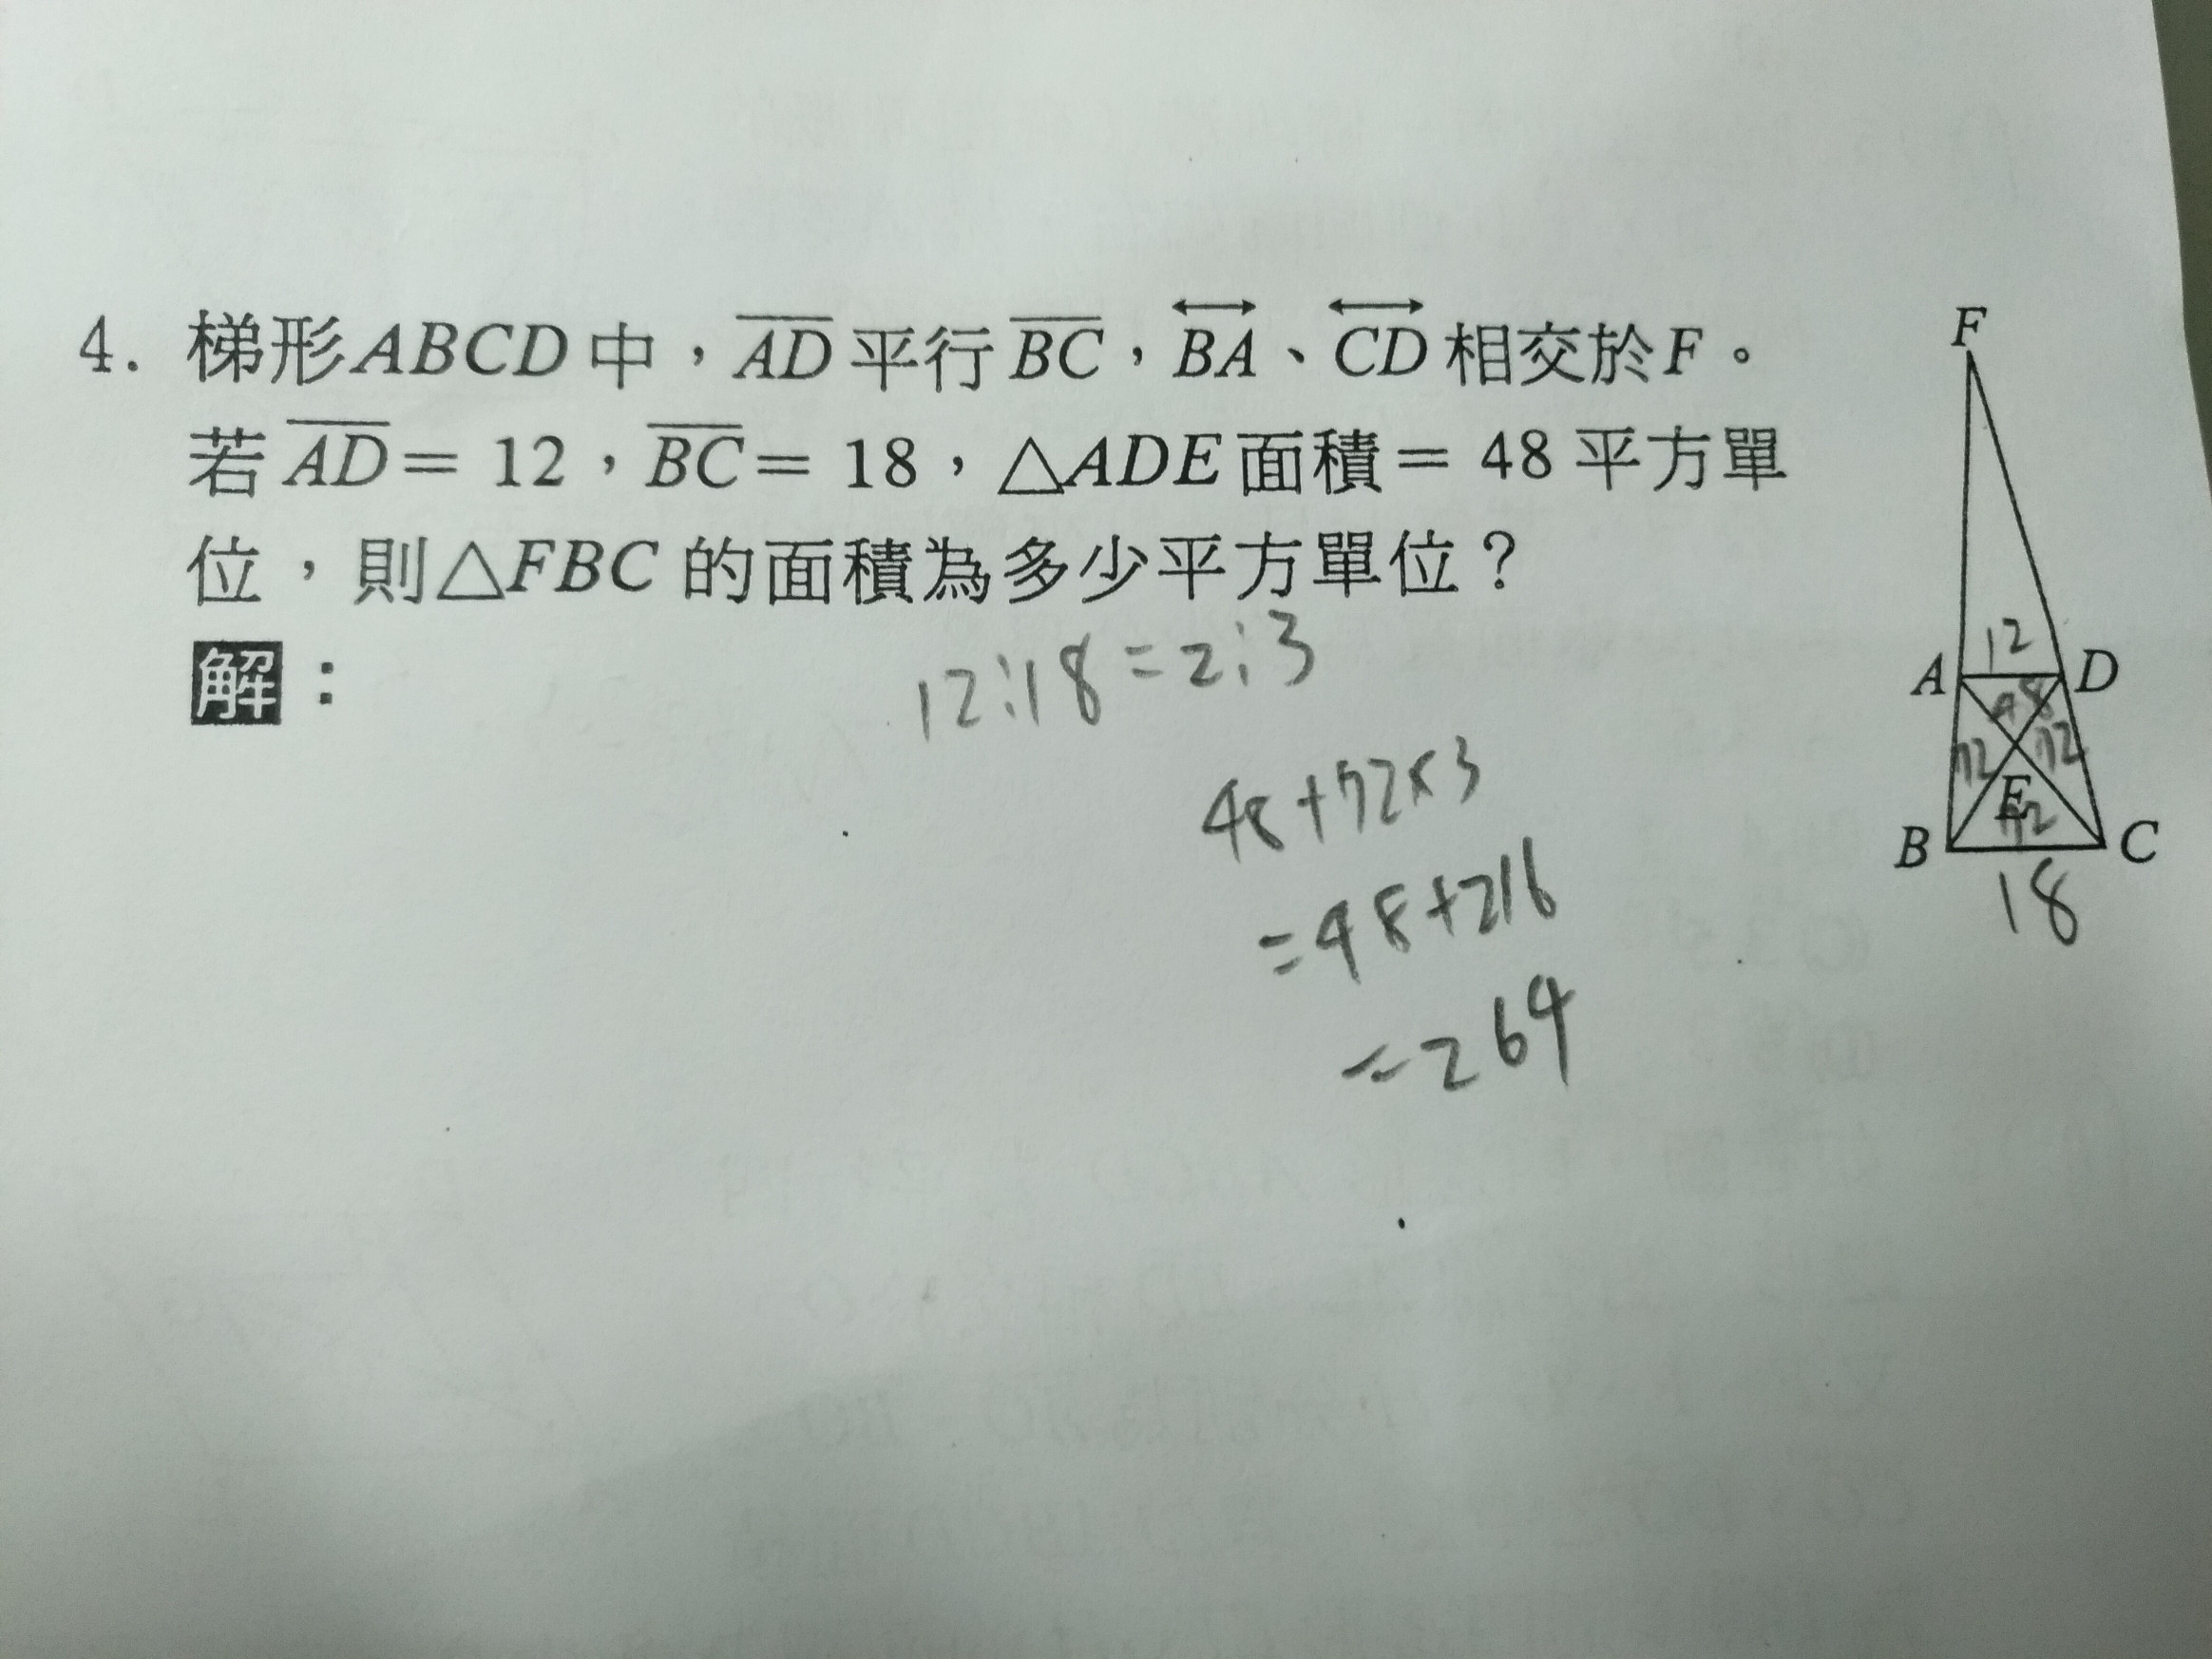 4. 梯形ABCD中，AD平行BC，BA、CD相交於F。
若AD=12，BC=18，△ADE面積=48平方單
位，則△FBC的面積為多少平方單位？
解：
12:18=2:3
48+72×3
=48+216
=264
F
12
A D
48
72 72
E
72
B C
18